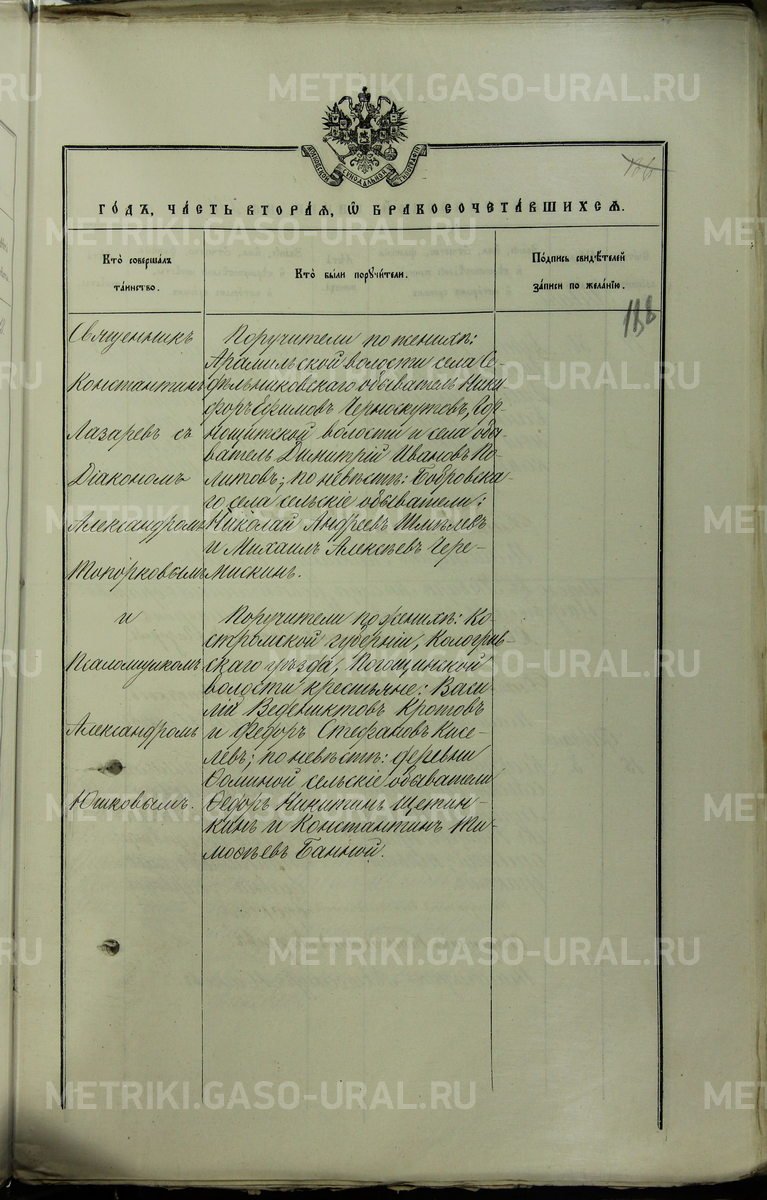 METRIKI.GASO-URAL.RU
МОСКОВСКОЙ СѴНОДАЛЬНОЙ ТИПОГРАФІИ
166
ГО́ДЪ, ЧА́СТЬ ВТОРА́Я, Ѡ БРАКОСОЧЕТА́ВШИХСЯ.
Кто̀ соверша́лъ
та́инство.
Кто̀ бы́ли поручи́тели.
По́дпись свидѣ́телей
за́писи по жела́нїю.
188
Священникъ
Константинъ
Лазаревъ съ
Діакономъ
Александромъ
Топорковымъ
и
Псаломщикомъ
Александромъ
Юшковымъ.
Поручители по женихѣ:
Арамильской волости села Се-
дѣльниковскаго обыватель Ники-
форъ Ефимовъ Черноскутовъ, Гор-
нощитской волости и села обы-
ватель Димитрій Ивановъ По-
литовъ; по невѣстѣ: Бобровска-
го села сельскіе обыватели:
Николай Андреевъ Шмелевъ
и Михаилъ Алексѣевъ Чере-
мискинъ.
Поручители по женихѣ: Ко-
стромской губерніи, Кологрив-
скаго уѣзда, Погощинской
волости крестьяне: Васи-
лій Веденнктовъ Кротовъ
и Федоръ Стефановъ Кисе-
левъ; по невѣстѣ: деревни
сельскіе обыватели
Ѳедоръ Никитинъ Щетин-
кинъ и Константинъ Ти-
моѳѣевъ Банной.